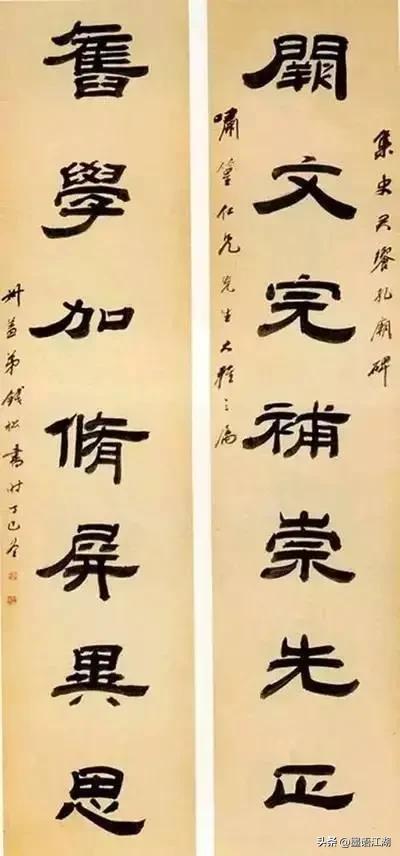 集史君饗孔廟碑
闕文完補崇先正
嘯篁仁兄先生大雅之屬
舊學加脩屏異思
叔蓋弟錢松書時丁巳冬
头条 @墨語江湖